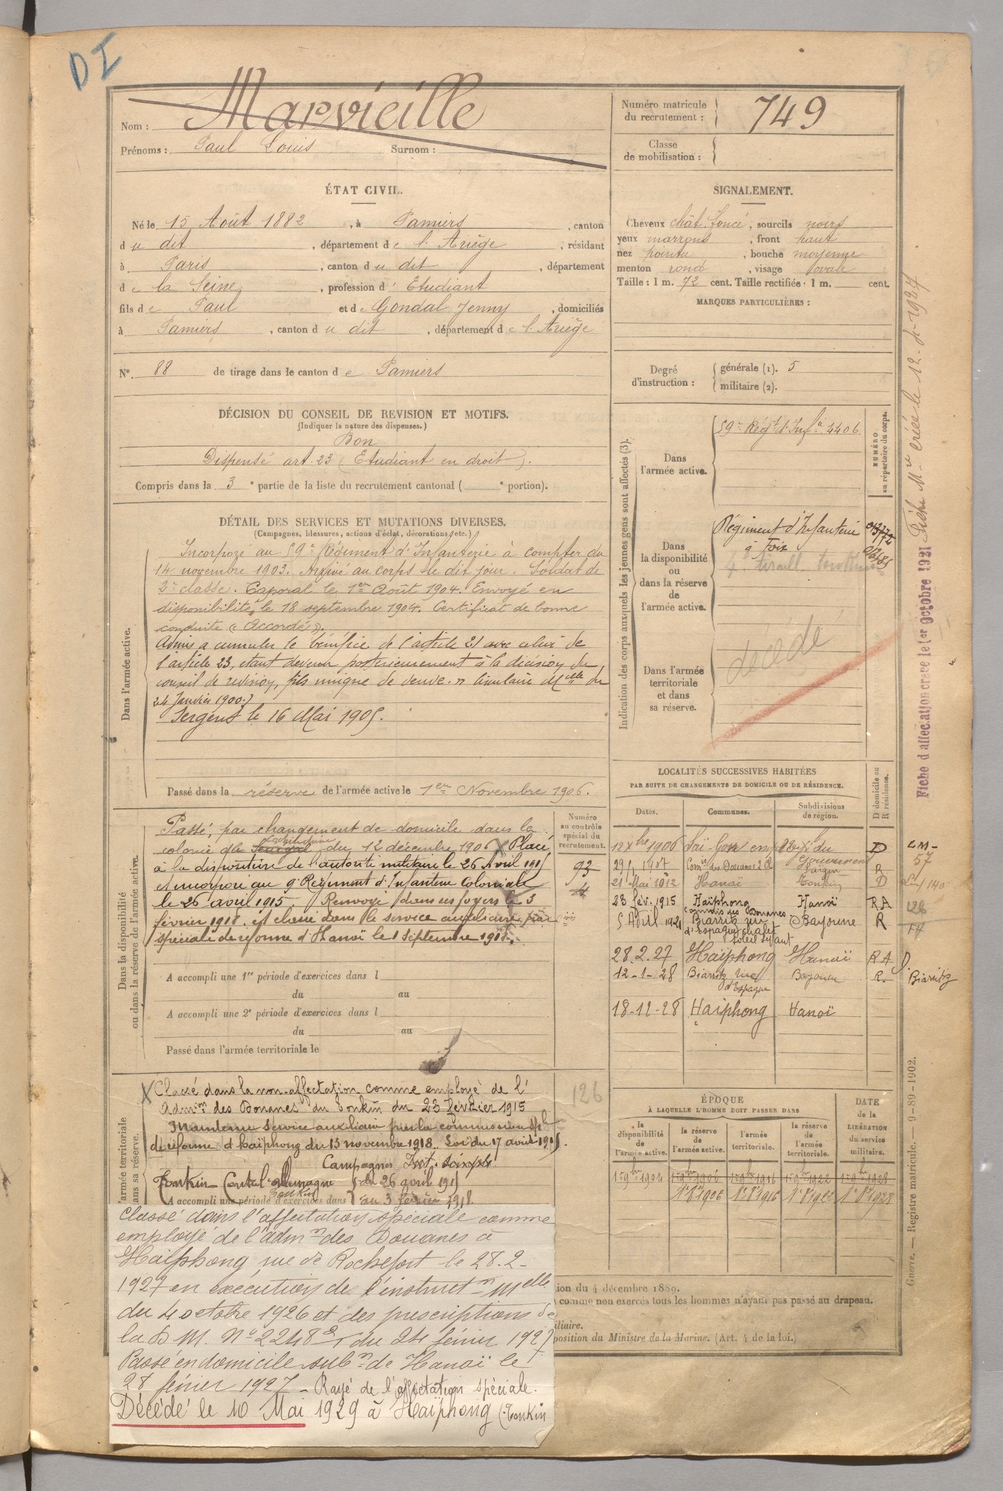 DI
Nom : Marvieille
Prénoms : Paul Louis Surnom :
Numéro matricule du recrutement : 749
Classe de mobilisation :
ÉTAT CIVIL.
Né le 15 Août 1882, à Pamiers, canton
du dit, département de l'Ariège, résidant
à Paris, canton du dit, département
de la Seine, profession d'Etudiant
fils de Paul et de Gondal Jenny, domiciliés
à Pamiers, canton du dit, département de l'Ariège
N° 88 de tirage dans le canton de Pamiers
SIGNALEMENT.
Cheveux chât. foncé, sourcils noirs
yeux marrons, front haut
nez pointu, bouche moyenne
menton rond, visage ovale
Taille : 1 m. 72 cent. Taille rectifiée : 1 m. cent.
MARQUES PARTICULIÈRES :
Degré d'instruction : générale (1). 5
militaire (2).
DÉCISION DU CONSEIL DE REVISION ET MOTIFS.
(Indiquer la nature des dispenses.)
Bon
Dispensé art. 23 (Etudiant en droit).
Compris dans la 3e partie de la liste du recrutement cantonal ( e portion).
DÉTAIL DES SERVICES ET MUTATIONS DIVERSES.
(Campagnes, blessures, actions d'éclat, décorations, etc.)
Dans l'armée active.
Incorporé au 59e Régiment d'Infanterie à compter du
14 novembre 1903. Arrivé au corps le dit jour. Soldat de
2e classe. Caporal le 1er Août 1904. Envoyé en
disponibilité le 18 septembre 1904. Certificat de bonne
conduite "Accordé".
Admis à cumuler le bénéfice de l'article 21 avec celui de
l'article 23, étant devenu postérieurement à la décision du
conseil de revision, fils unique de veuve. (Circulaire Melle du
24 Janvier 1900.)
Sergent le 16 Mai 1905.
Passé dans la réserve de l'armée active le 1er Novembre 1906.
Indication des corps auxquels les jeunes gens sont affectés (3).
Dans l'armée active.
59e Régt d'Infie 4406
NUMÉRO au répertoire du corps.
Dans la disponibilité ou dans la réserve de l'armée active.
Régiment d'Infanterie
à Foix
Dans l'armée territoriale et dans sa réserve.
décédé
LOCALITÉS SUCCESSIVES HABITÉES
PAR SUITE DE CHANGEMENTS DE DOMICILE OU DE RÉSIDENCE.
Dates. Communes. Subdivisions de région. D domicile ou R résidence.
21 Mai 1912 Hanoï Tonkin D
23 fév. 1915 Haïphong Hanoï RA
5 Avril 1921 commis des Douanes Biarritz rue d'Espagne chalet Bayonne R
28.2.27 Haïphong Hanoï RA
12-1-28 Biarritz rue d'Espagne Bayonne R.
18-12-28 Haïphong Hanoï
Biarritz
Numéro au contrôle spécial du recrutement.
Dans la disponibilité ou dans la réserve de l'armée active.
Passé, par changement de domicile dans la
colonie du 12 décembre 1906 X Placé
à la disposition de l'autorité militaire le 26 Avril 1915
et incorporé au 9e Régiment d'Infanterie Coloniale
le 26 avril 1915. Renvoyé dans ses foyers le 3
février 1918. et classé dans le service auxiliaire
spéciale de réforme d'Hanoï le 1 Septembre
A accompli une 1re période d'exercices dans l
du au
A accompli une 2e période d'exercices dans l
du au
Passé dans l'armée territoriale le
126
X Classé dans la non-affectation comme employé de l'
Admon des Douanes du Tonkin du 23 février 1915
Maintenu service auxiliaire par la commission sple
de réforme d'Haïphong du 13 novembre 1918. Loi du 17 août
Campagnes
Tonkin Contre l'Allemagne du 26 avril 1915
au 3 février 1918
A accompli une période d'exercices dans
Classé dans l'affectation spéciale comme
employé de l'admon des Douanes à
Haïphong rue de Rochefort le 28-2-
1927 en exécution de l'instructon Melle
du 4 octobre 1926 et des prescriptions de
la D. M. N° 2248 du 24 février 1927
Passé en domicile subon de Hanoï le
28 février 1927 - Rayé de l'affectation spéciale.
Décédé le 10 Mai 1929 à Haïphong (Tonkin
ÉPOQUE
À LAQUELLE L'HOMME DOIT PASSER DANS
la disponibilité de l'armée active. la réserve de l'armée active. l'armée territoriale. la réserve de l'armée territoriale.
DATE de la LIBÉRATION du service militaire.
ion du 4 décembre 1889.
comme non exercés tous les hommes n'ayant pas passé au drapeau.
iliaire.
position du Ministre de la Marine. (Art. 4 de la loi.)
Fiche d'affectation créée le 1er octobre 1931
Guerre. — Registre matricule. — 9-89-1902.